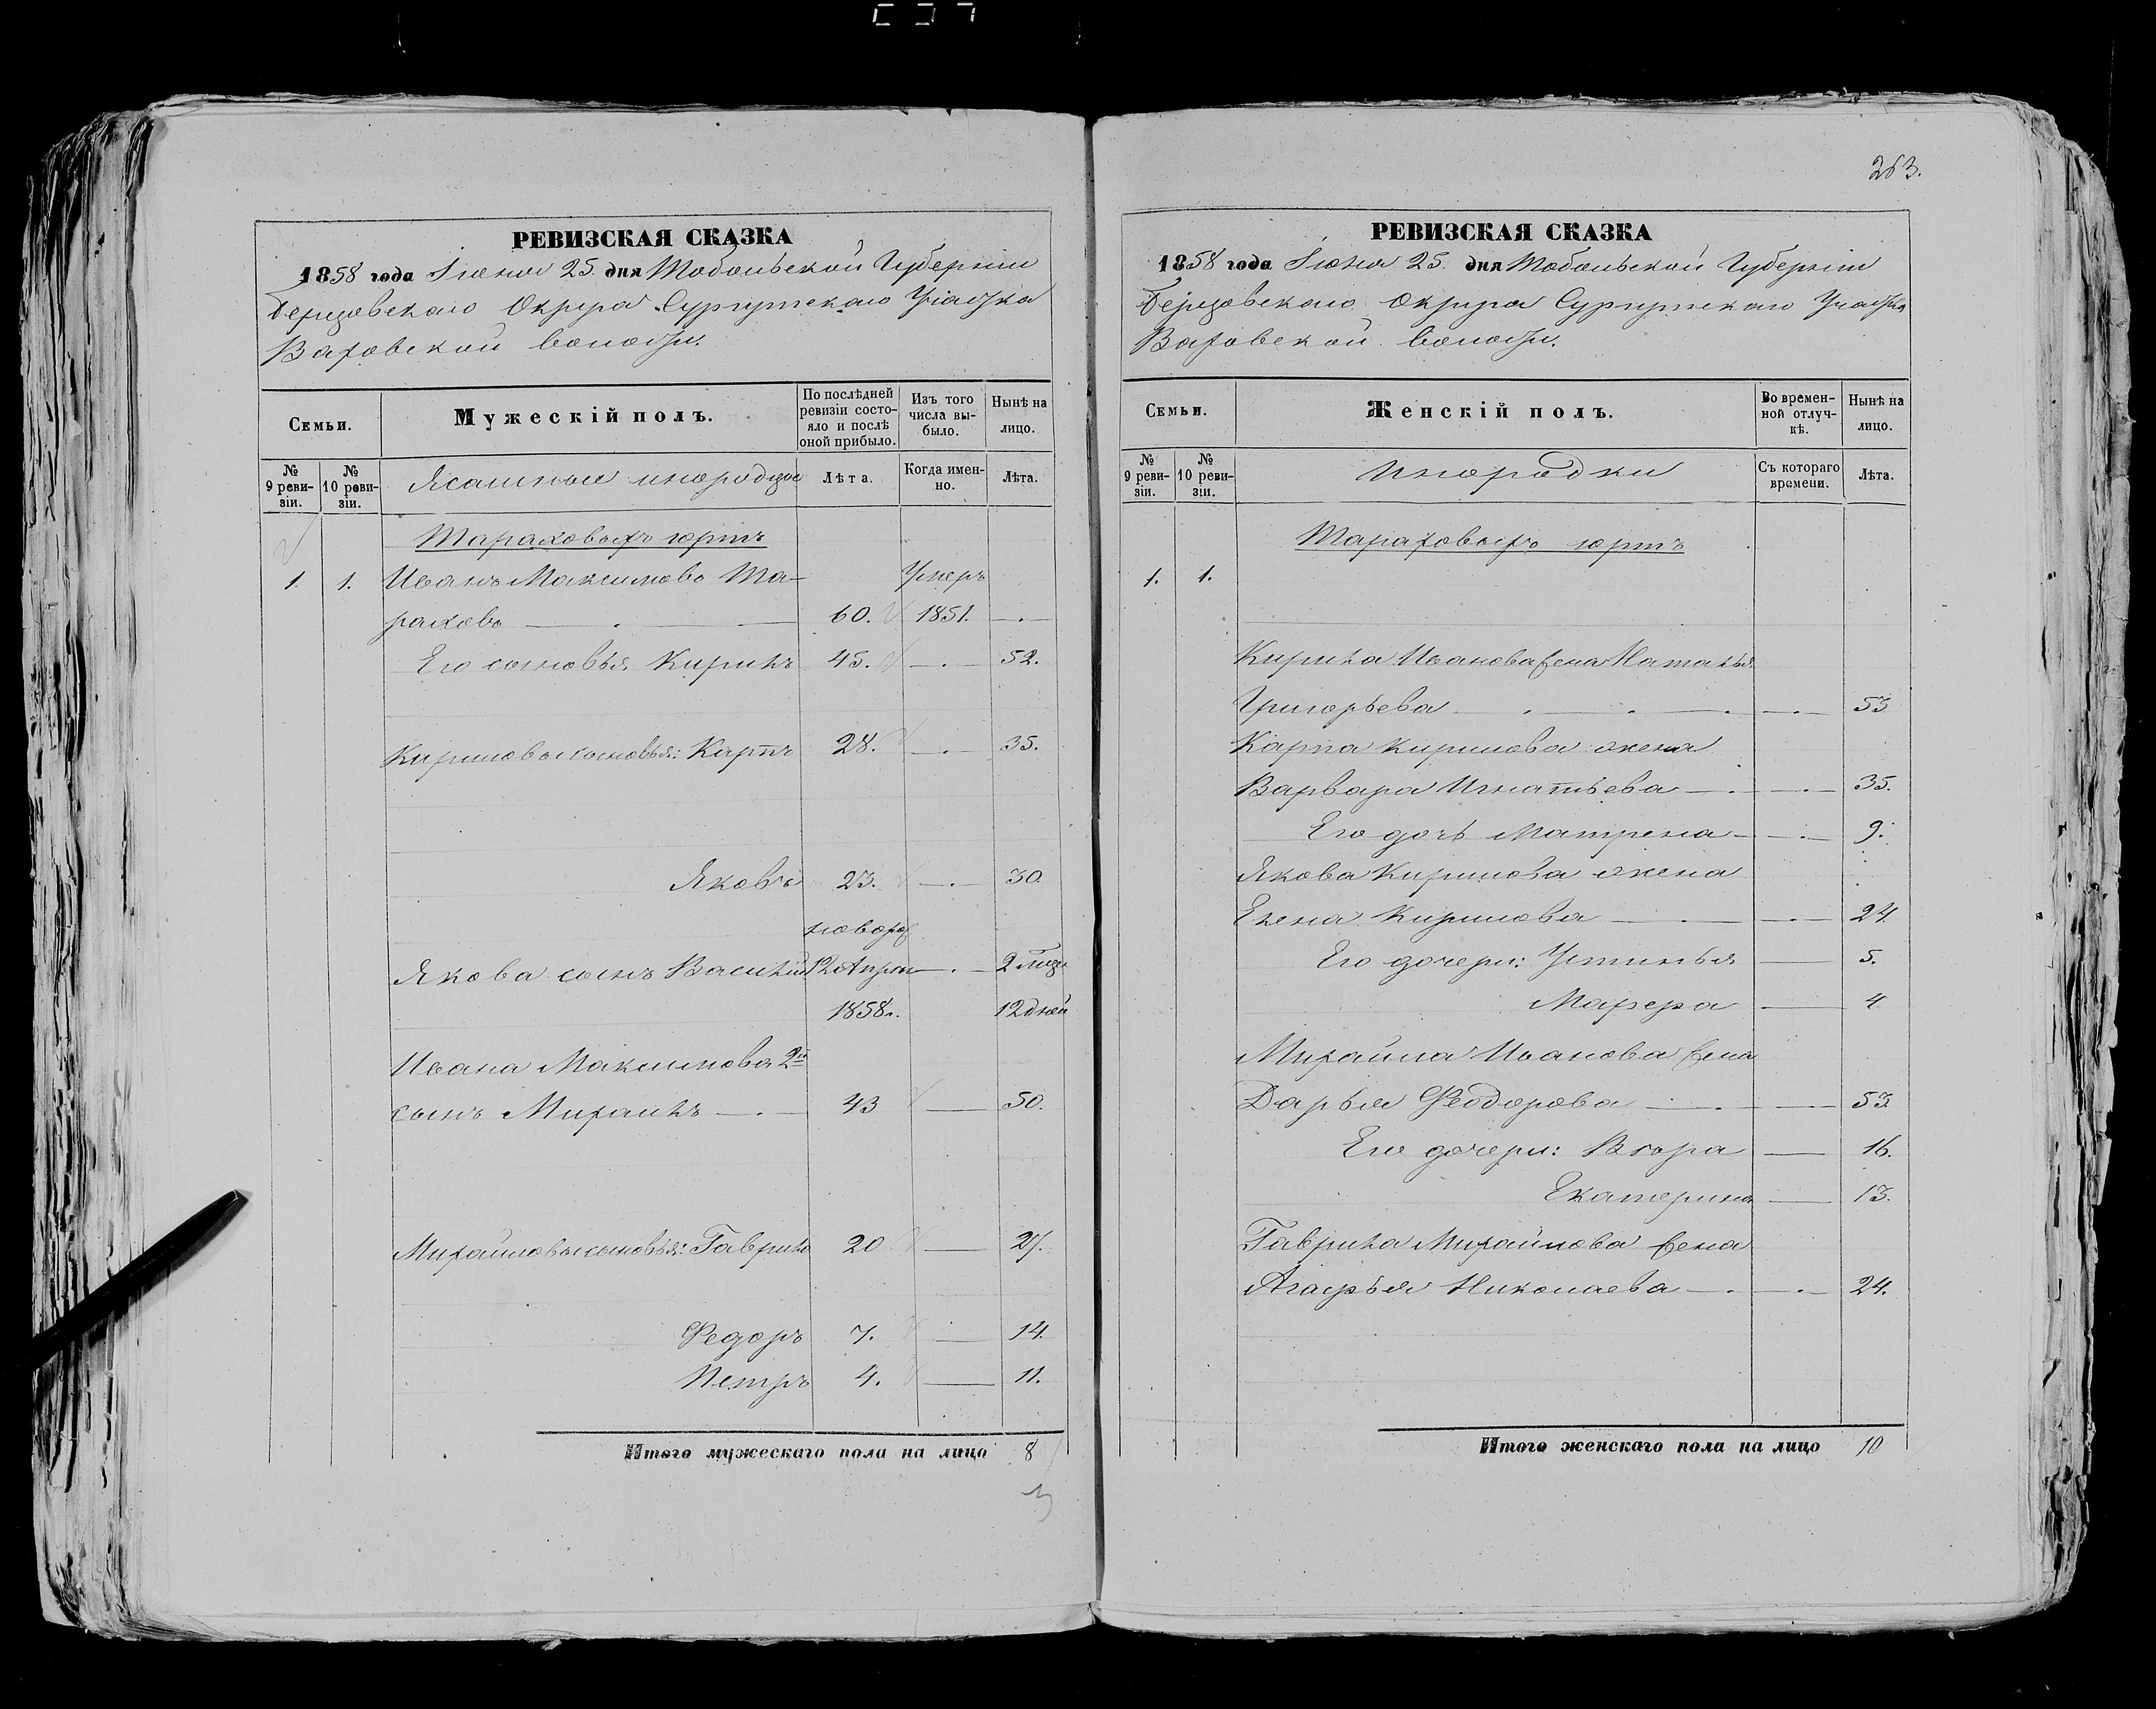 263.
РЕВИЗСКАЯ СКАЗКА
1858 года Іюня 25. дня Тобольской Губерніи
Березовскаго Округа Сургутскаго Участка
Ваховской волости.
Семьи.
Мужескій полъ.
По послѣдней ревизіи состояло и послѣ оной прибыло.
Изъ того числа выбыло.
Нынѣ на лицо.
№ 9 ревизіи.
№ 10 ревизіи.
Ясашные инородцы
Лѣта.
Когда именно.
Лѣта.
Тараховыхъ юртъ
1. 1. Иванъ Максимовъ Та- Умеръ
раховъ 60. 1851.
Его сыновья Кирилъ 45. 52.
Кириловы сыновья: Карпъ 28. 35.
Яковъ 23. 30.
новорож
Якова сынъ Василій 12 Апрѣля 2 мѣся
1858г. 12 дней
Ивана Максимова 2й
сынъ Михаилъ 43 50.
Михайловы сыновья: Гаврило 20 27.
Федоръ 7. 14.
Петръ 4. 11.
Итого мужескаго пола на лицо 8
РЕВИЗСКАЯ СКАЗКА
1858 года Іюня 25. дня Тобольской Губерніи
Березовскаго Округа Сургутскаго Участка
Ваховской волости.
Семьи.
Женскій полъ.
Во временной отлучкѣ.
Нынѣ на лицо.
№ 9 ревизіи.
№ 10 ревизіи.
Инородки
Съ котораго времени.
Лѣта.
Тараховыхъ юртъ
1. 1.
Кирила Иванова жена Наталья
Григорьева 53
Карпа Кирилова жена
Варвара Игнатьева 35.
Его дочь Матрена 9.
Якова Кирилова жена
Елена Кирилова 24.
Его дочери: Устинья 5.
Марфа 4
Михайла Иванова жена
Дарья Феодорова 53.
Его дочери: Вѣра 16.
Екатерина 13.
Гаврила Михайлова жена
Агафья Николаева 24.
Итого женскаго пола на лицо 10